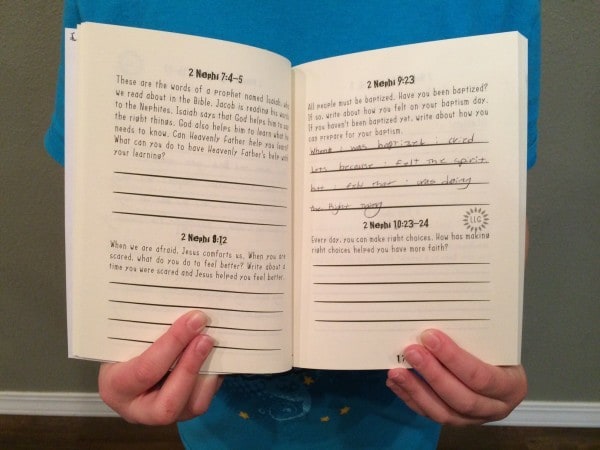 2 Nephi 7:4-5
These are the words of a prophet named Isaiah, who
we read about in the Bible. Jacob is reading his words
to the Nephites. Isaiah says that God helps him to say
the right things. God also helps him to learn what he
needs to know. Can Heavenly Father help you learn?
What can you do to have Heavenly Father's help with
your learning?
2 Nephi 8:12
When we are afraid, Jesus comforts us. When you are
scared, what do you do to feel better? Write about a
time you were scared and Jesus helped you feel better.
2 Nephi 9:23
All people must be baptized. Have you been baptized?
If so, write about how you felt on your baptism day.
If you haven't been baptized yet, write about how you
can prepare for your baptism.
i was baptized i cried
lots because i felt the spirit
i felt that i was doing
the right thing
LLG
2 Nephi 10:23-24
Every day, you can make right choices. How has making
right choices helped you have more faith?